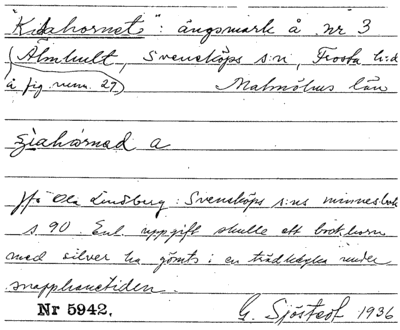 "Kidahornet": ängsmark å nr 3
(Älmhult, Svensköps s:n, Frosta h:d
å fig. num. 27) Malmöhus län
jfr Ola Lindberg: Svensköps s:ns minnesbok
s. 90. Enl. uppgift skulle ett bockhorn
med silver ha gömts i en trädklyka under
snapphanetiden.
Nr 5942. G. Sjöstedt 1936